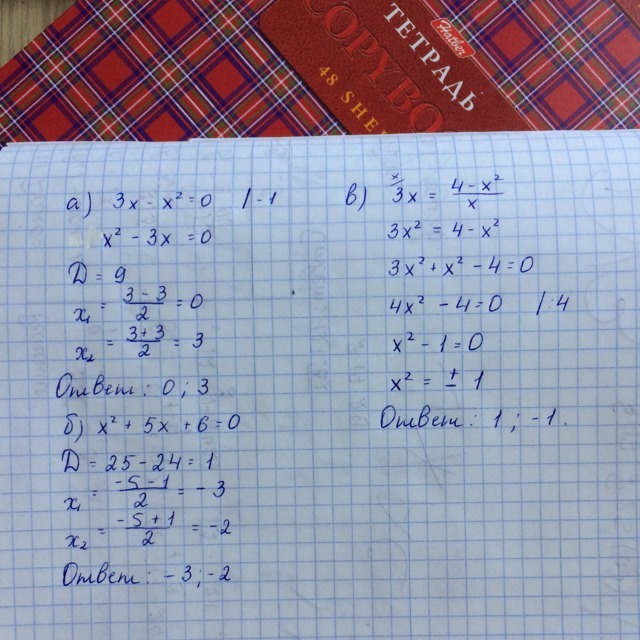 Hatber
ТЕТРАДЬ
COPYBO
48 SHE
а) 3x - x² = 0 | ·-1
x² - 3x = 0
D = 9
x₁ = (3 - 3)/2 = 0
x₂ = (3 + 3)/2 = 3
Ответ: 0; 3
б) x² + 5x + 6 = 0
D = 25 - 24 = 1
x₁ = (-5 - 1)/2 = -3
x₂ = (-5 + 1)/2 = -2
Ответ: -3; -2
в) ˣ⁄3x = (4 - x²)/x
3x² = 4 - x²
3x² + x² - 4 = 0
4x² - 4 = 0 | :4
x² - 1 = 0
x² = ± 1
Ответ: 1; -1.